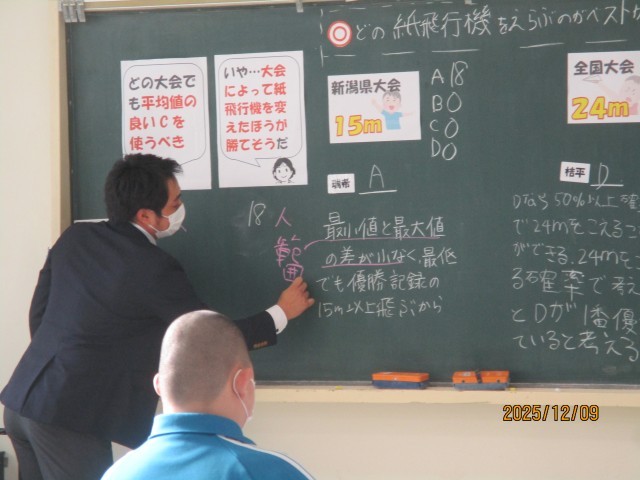 どの紙飛行機をえらぶのがベストか
どの大会で
も平均値の
良いCを
使うべき
いや…大会
によって紙
飛行機を変
えたほうが
勝てそうだ
新潟県大会
15m
A 18
B 0
C 0
D 0
全国大会
24m
A
桔平 D
18人
範囲
最小値と最大値
の差が少なく、最低
でも優勝記録の
15m以上飛ぶから
Dなら50%以上確
で24mをこえるこ
ができる。24mを
る確率で考え
とDが1番優
ていると考える
2025/12/09